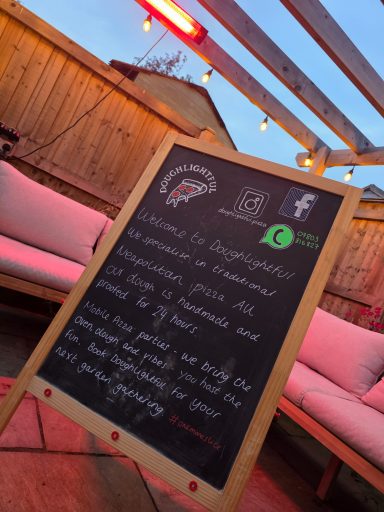 DOUGHLIGHTFUL
doughlightful.pizza
Welcome to Doughlightful
We specialise in traditional
Neapolitan pizza. All
our dough is handmade and
proofed for 24 hours
Mobile Pizza parties we bring the
Oven, dough and vibes you host the
fun. Book Doughlightful for your
next garden gathering